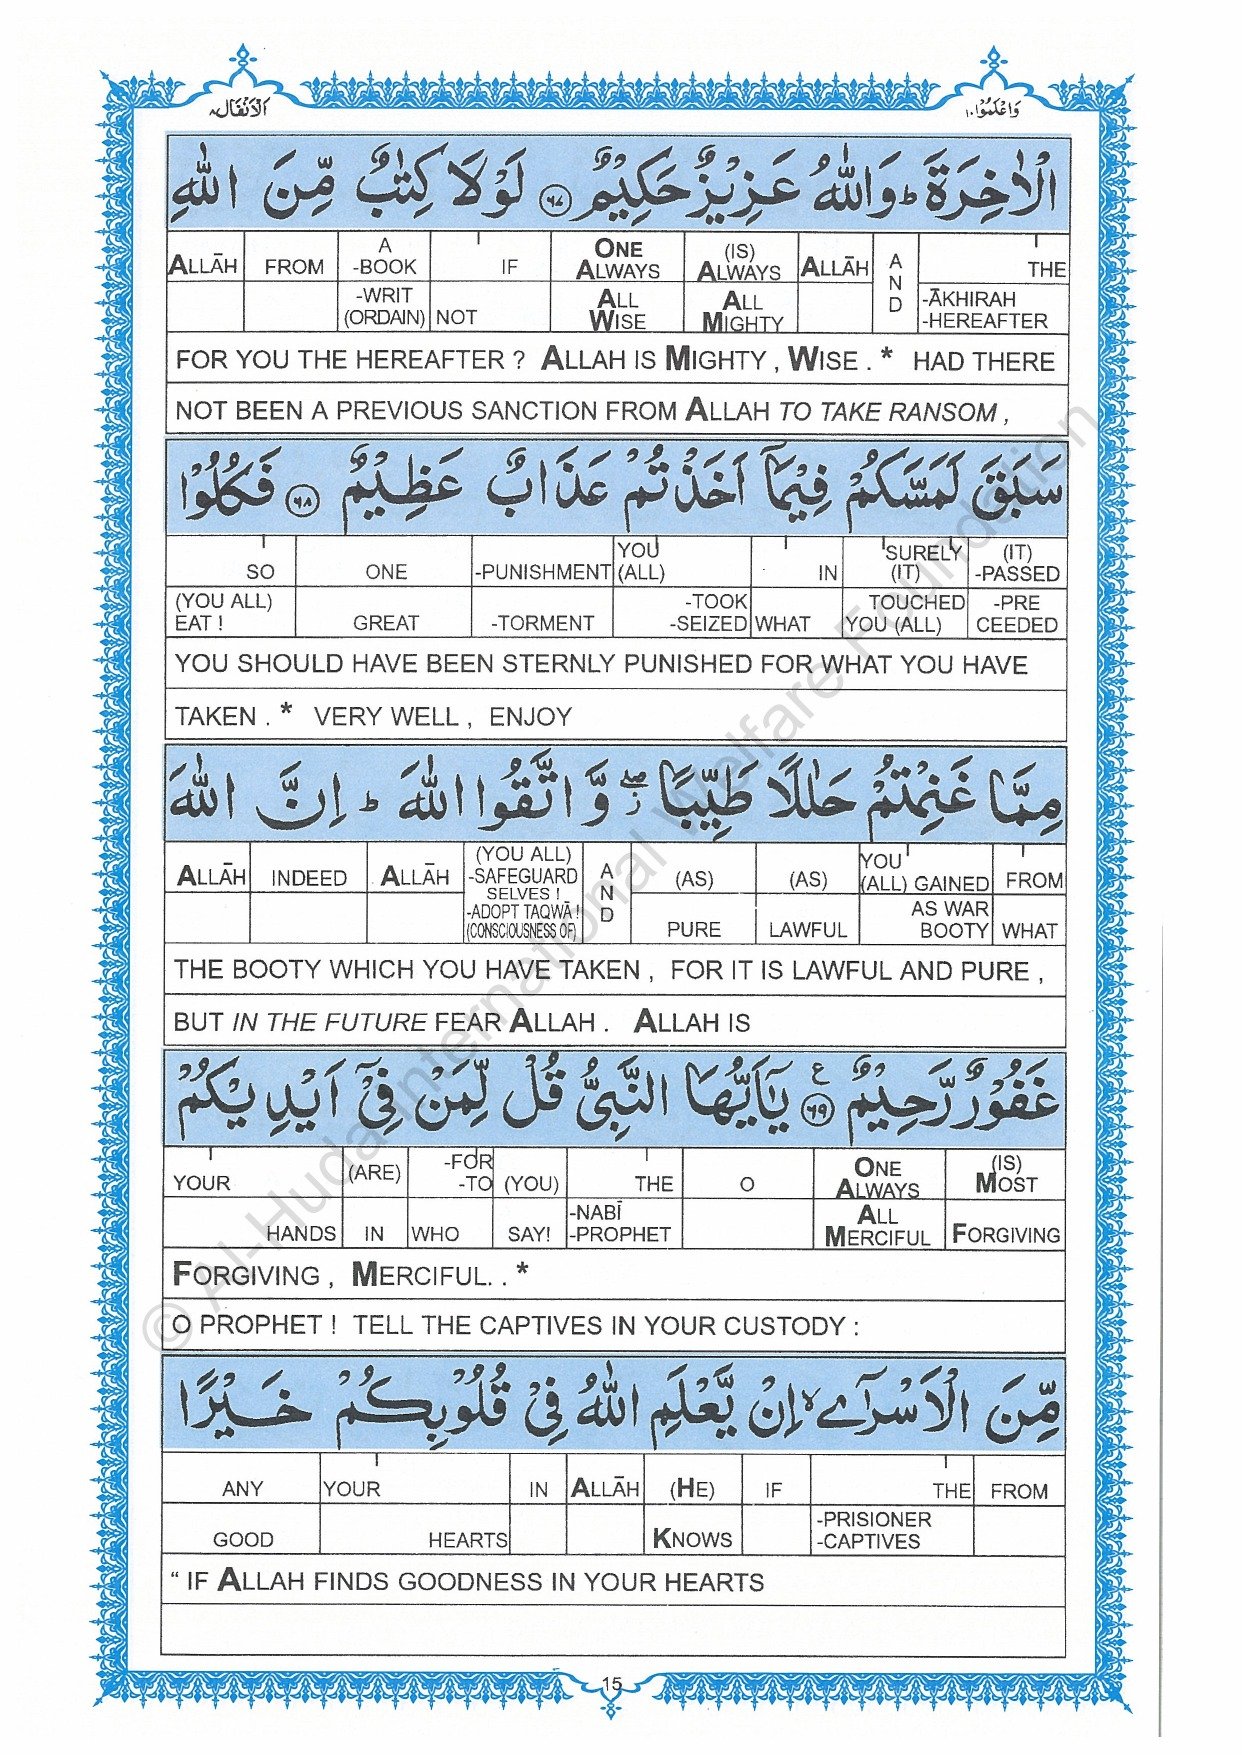 اَلْاَنْفَال
وَاعْلَمُوْۤا ١٠
الْاٰخِرَةَ ؕ وَاللّٰهُ عَزِیْزٌ حَكِیْمٌ ﴿۶۷﴾ لَوْلَا كِتٰبٌ مِّنَ اللّٰهِ
ALLĀH FROM A -BOOK IF ONE ALWAYS (IS) ALWAYS ALLĀH AND THE
-WRIT (ORDAIN) NOT ALL WISE ALL MIGHTY -ĀKHIRAH -HEREAFTER
FOR YOU THE HEREAFTER ? ALLAH IS MIGHTY , WISE . * HAD THERE
NOT BEEN A PREVIOUS SANCTION FROM ALLAH TO TAKE RANSOM ,
سَبَقَ لَمَسَّكُمْ فِیْمَاۤ اَخَذْتُمْ عَذَابٌ عَظِیْمٌ ﴿۶۸﴾ فَكُلُوْا
SO ONE -PUNISHMENT YOU (ALL) IN SURELY (IT) (IT) -PASSED
(YOU ALL) EAT ! GREAT -TORMENT -TOOK -SEIZED WHAT TOUCHED YOU (ALL) -PRE CEEDED
YOU SHOULD HAVE BEEN STERNLY PUNISHED FOR WHAT YOU HAVE
TAKEN . * VERY WELL , ENJOY
مِمَّا غَنِمْتُمْ حَلٰلًا طَیِّبًا ۖ وَّ اتَّقُوا اللّٰهَ ؕ اِنَّ اللّٰهَ
ALLĀH INDEED ALLĀH (YOU ALL) -SAFEGUARD SELVES ! AND (AS) (AS) YOU (ALL) GAINED FROM
-ADOPT TAQWĀ ! (CONSCIOUSNESS OF) PURE LAWFUL AS WAR BOOTY WHAT
THE BOOTY WHICH YOU HAVE TAKEN , FOR IT IS LAWFUL AND PURE ,
BUT IN THE FUTURE FEAR ALLAH . ALLAH IS
غَفُوْرٌ رَّحِیْمٌ ﴿۶۹﴾ ع یٰۤاَیُّهَا النَّبِیُّ قُلْ لِّمَنْ فِیْۤ اَیْدِیْكُمْ
YOUR (ARE) -FOR -TO (YOU) THE O ONE ALWAYS (IS) MOST
HANDS IN WHO SAY! -NABĪ -PROPHET ALL MERCIFUL FORGIVING
FORGIVING , MERCIFUL. . *
O PROPHET ! TELL THE CAPTIVES IN YOUR CUSTODY :
مِّنَ الْاَسْرٰۤی ۙ اِنْ یَّعْلَمِ اللّٰهُ فِیْ قُلُوْبِكُمْ خَیْرًا
ANY YOUR IN ALLĀH (HE) IF THE FROM
GOOD HEARTS KNOWS -PRISIONER -CAPTIVES
“ IF ALLAH FINDS GOODNESS IN YOUR HEARTS
15
© Al-Huda International Welfare Foundation